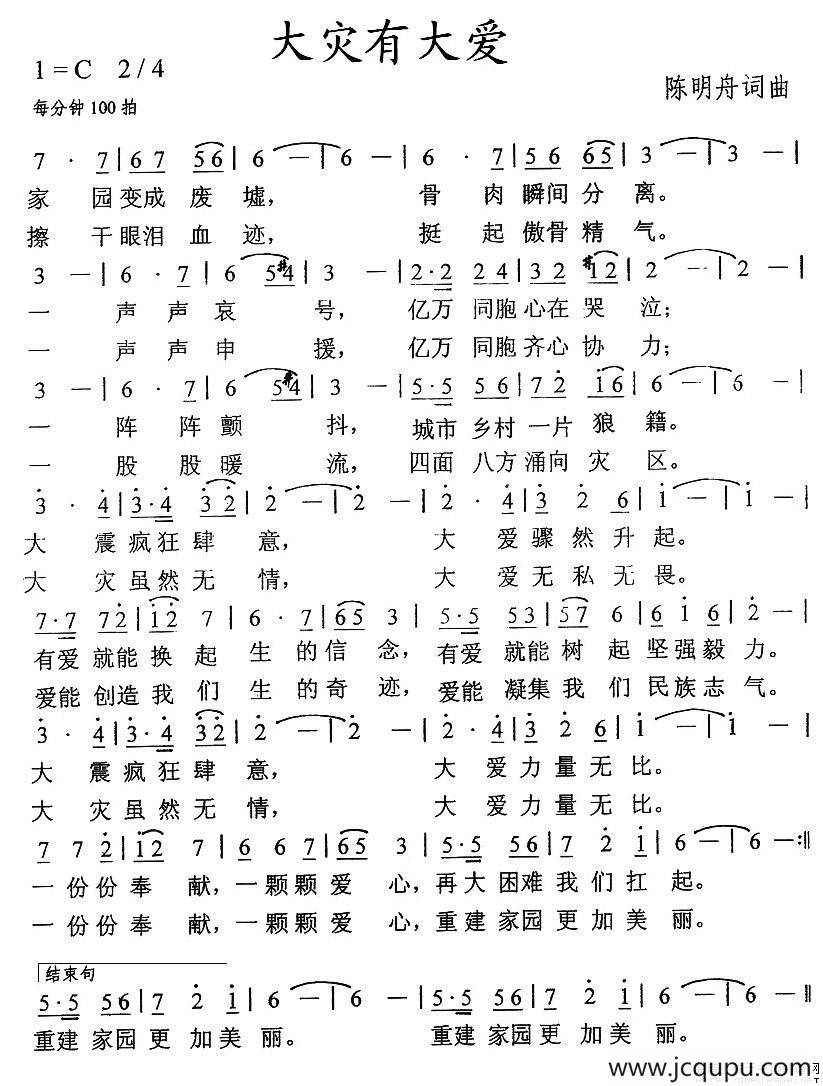 大灾有大爱
1=C 2/4
陈明舟词曲
每分钟100拍
7 · 7|6 7 5 6|6 —|6 —|6 · 7|5 6 6 5|3 —|3 —|
家 园变成 废 墟, 骨 肉 瞬间 分 离。
擦 干眼泪 血 迹, 挺 起 傲骨 精 气。
3 —|6 · 7|6 5#4|3 —|2·2 2 4|3 2 #1 2|2 —|2 —|
一 声 声 哀 号, 亿万 同胞 心在 哭 泣;
一 声 声 申 援, 亿万 同胞 齐心 协 力;
3 —|6 · 7|6 5#4|3 —|5·5 5 6|7 2 i 6|6 —|6 —|
一 阵 阵 颤 抖, 城市 乡村 一片 狼 籍。
一 股 股 暖 流, 四面 八方 涌向 灾 区。
3 · 4|3·4 3 2|2 —|2 —|2 · 4|3 2 6|i —|i —|
大 震疯狂 肆 意, 大 爱 骤 然 升 起。
大 灾虽然 无 情, 大 爱 无 私 无 畏。
7·7 7 2|i 2 7|6 · 7|6 5 3|5·5 5 3|5 7 6|6 i 6|2 —|
有爱 就能 换 起 生 的 信 念, 有爱 就能 树 起 坚强 毅 力。
爱能 创造 我 们 生 的 奇 迹, 爱能 凝集 我 们 民族 志 气。
3 · 4|3·4 3 2|2 —|2 —|2 · 4|3 2 6|i —|i —|
大 震疯狂 肆 意, 大 爱 力 量 无 比。
大 灾虽然 无 情, 大 爱 力 量 无 比。
7 7 2|i 2 7|6 6 7|6 5 3|5·5 5 6|7 2 i|6 —|6 —:‖
一份份 奉 献, 一颗颗 爱 心, 再大 困难 我 们 扛 起。
一份份 奉 献, 一颗颗 爱 心, 重建 家园 更 加 美 丽。
结束句
5·5 5 6|7 2 i|6 —|6 —|5·5 5 6|7 2 i|6 —|6 —‖
重建 家园 更 加美 丽。 重建 家园 更 加美 丽。
www.jcqupu.com